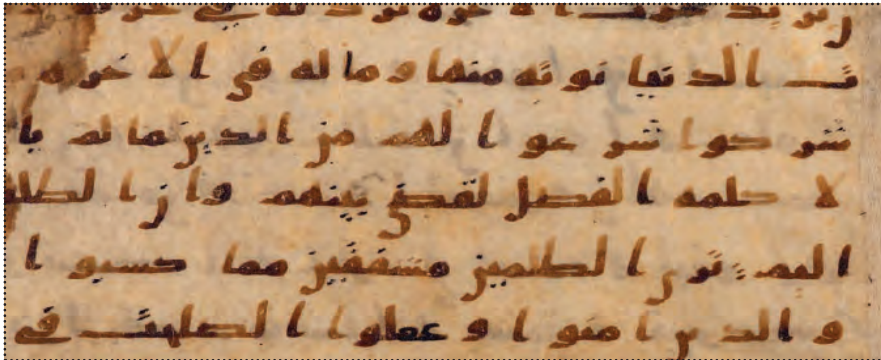 ن يريد حرث الاخره نزد له في حر
ث الدنيا نوته منها وما له في الاخره م
شركوا شرعوا لهم من الدين ما لم يا
لا كلمه الفصل لقضي بينهم وان الظلم
اليم ترى الظلمين مشفقين مما كسبوا
والذين امنوا وعملوا الصلحت في